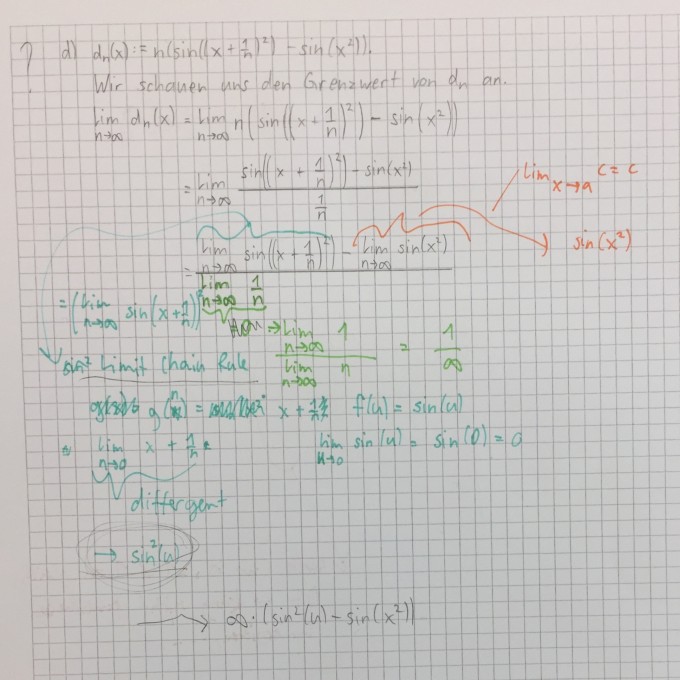 ? d) dₙ(x) := n(sin((x + 1/n)²) - sin(x²)).
Wir schauen uns den Grenzwert von dₙ an.
lim n→∞ dₙ(x) = lim n→∞ n(sin((x + 1/n)²) - sin(x²))
= lim n→∞ (sin((x + 1/n)²) - sin(x²)) / (1/n)
lim x→a c = c
= (lim n→∞ sin((x + 1/n)²) - lim n→∞ sin(x²)) / (lim n→∞ 1/n)
sin(x²)
= (lim n→∞ sin(x + 1/n))²
⇒ (lim n→∞ 1) / (lim n→∞ n) = 1/∞
sin² Limit Chain Rule
x + 1/n f(u) = sin(u)
lim n→0 x + 1/n
lim u→0 sin(u) = sin(0) = 0
differgent
→ sin²(u)
→ ∞ · (sin²(u) - sin(x²))